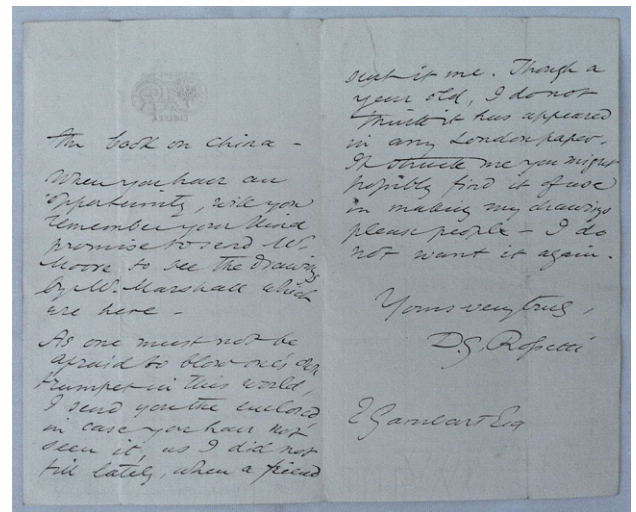 the book on China -
When you have an
opportunity, will you
remember your kind
promise to send Mr.
Moore to see the drawings
by Mr. Marshall which
are here -
As one must not be
afraid to blow one's own
trumpet in this world,
I send you the enclosed
in case you have not
seen it, as I did not
till lately, when a friend
sent it me. Though a
year old, I do not
think it has appeared
in any London paper.
It struck me you might
possibly find it of use
in making my drawings
please people - I do
not want it again.
Yours very truly,
D.G. Rossetti
E Gambart Esq